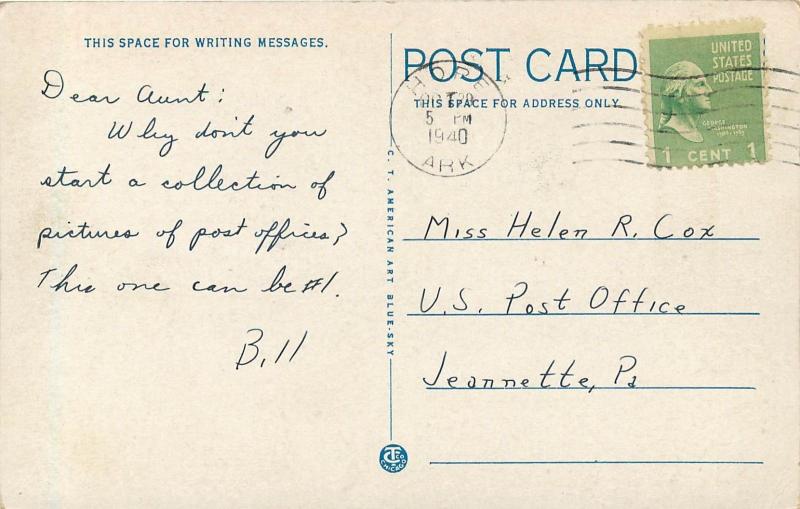 THIS SPACE FOR WRITING MESSAGES.
Dear Aunt:
Why don't you
start a collection of
pictures of post offices?
This one can be #1.
Bill
C. T. AMERICAN ART BLUE-SKY
POST CARD
THIS SPACE FOR ADDRESS ONLY.
HOPE
5 PM
1940
ARK
UNITED
STATES
POSTAGE
GEORGE
WASHINGTON
1 CENT 1
Miss Helen R. Cox
U.S. Post Office
Jeannette, Pa
CHICAGO